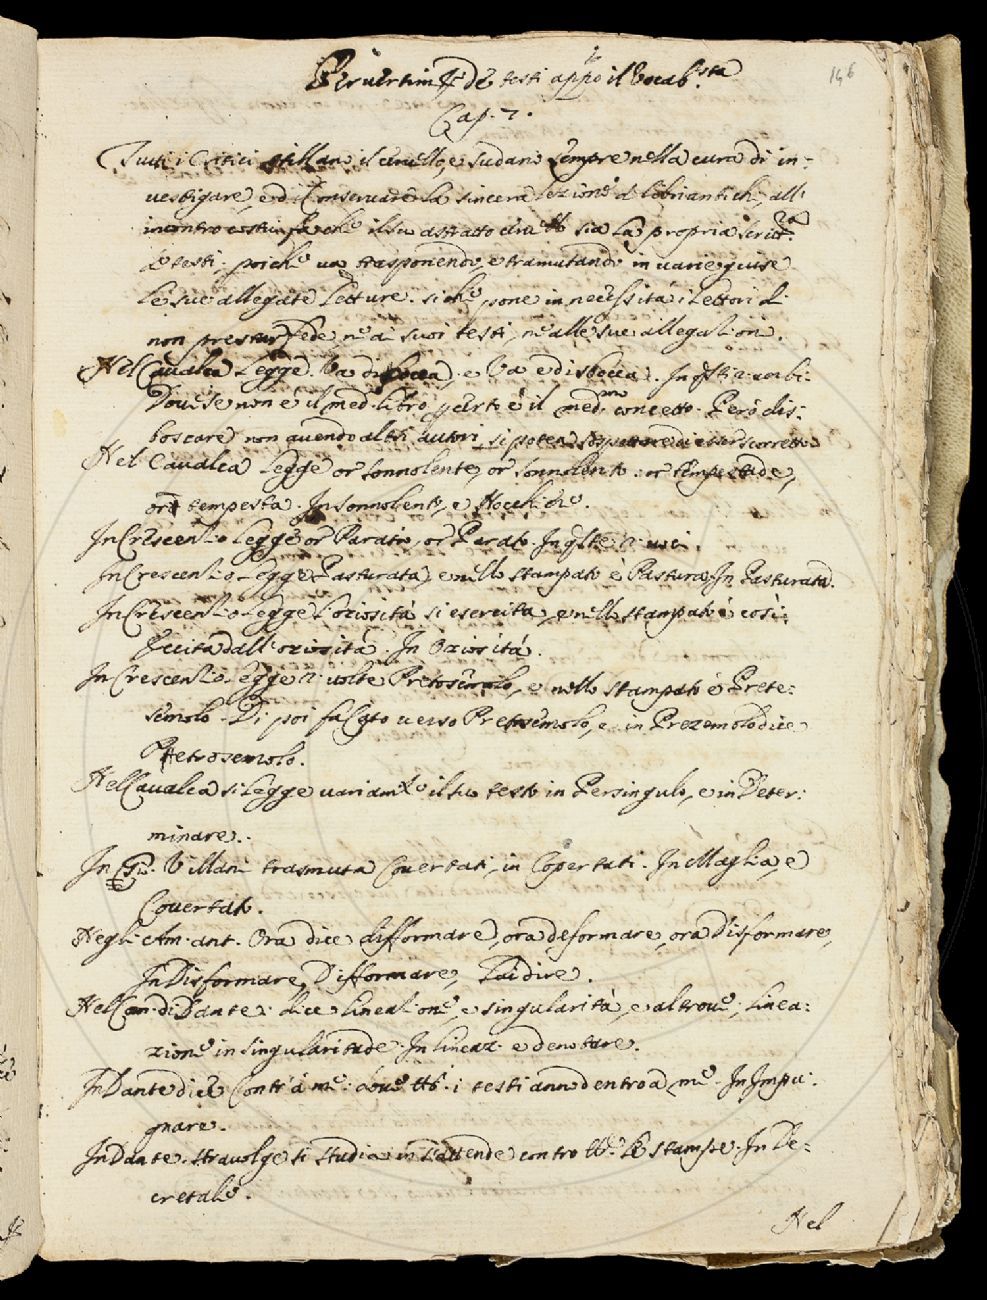 146
Pervertim.to de testi appo il Vocab.sta
Cap. 7.
Tutti i Critici stillano il cervello, e sudano sempre nella cura di in-
vestigare, e di conservare la sincera lezione de libri antichi, all
incontro costui fa che il suo astratto sia la propria scritt.ra
de testi; poiche va trasponendo, e tramutando in varie guise
le sue allegate letture. siche pone in necessità i lettori di
non prestar fede ne a suoi testi, ne alle sue allegazioni.
Nel Cavalca legge. Va di bocca, e Va e disbocca. In
Dove se non è il med. libro, certo è il med.mo concetto. Però dis-
boccare non avendo altri autori, si potea sospettare di esser scorretto.
Nel Cavalca legge or sonnolente, or sonnolento: or tempestade,
or tempesta. In sonnolento, e
In Crescenzio legge or Parato, or Perato. In q.ste 2 voci.
In Crescenzio legge Pasturata, e nello stampato è Pastura. In Pasturata.
In Crescenzio legge L'oziosità si esercita, e nello stampato è così:
Eccita dall'oziosità. In Oziosità.
In Crescenzio legge 2 volte Pretosemolo, e nello stampato è Prete-
semolo. Di poi fa Pretosemolo, e in Prezemolo dice
Petrosemolo.
Nel Cavalca si legge variam.te il suo testo in Persingulo, e in Deter-
minare.
In Gio. Villani trasmuta Covertati, in Copertati. In Maglia, e
Covertato.
Negli Am. ant. Ora dice difformare, ora deformare, ora disformare,
In Disformare, Difformare,
Nel Con. di Dante. dice lineazione, e singularità, e altrove, linea-
zione in singularitade. In lineaz. e denotare.
In Dante dice Contr'a me: dove tti i testi anno dentro a me. In Impu-
gnare.
In Dante. stravolge si studia in s'attende contro tte le stampe. In De-
cretale.
Nel